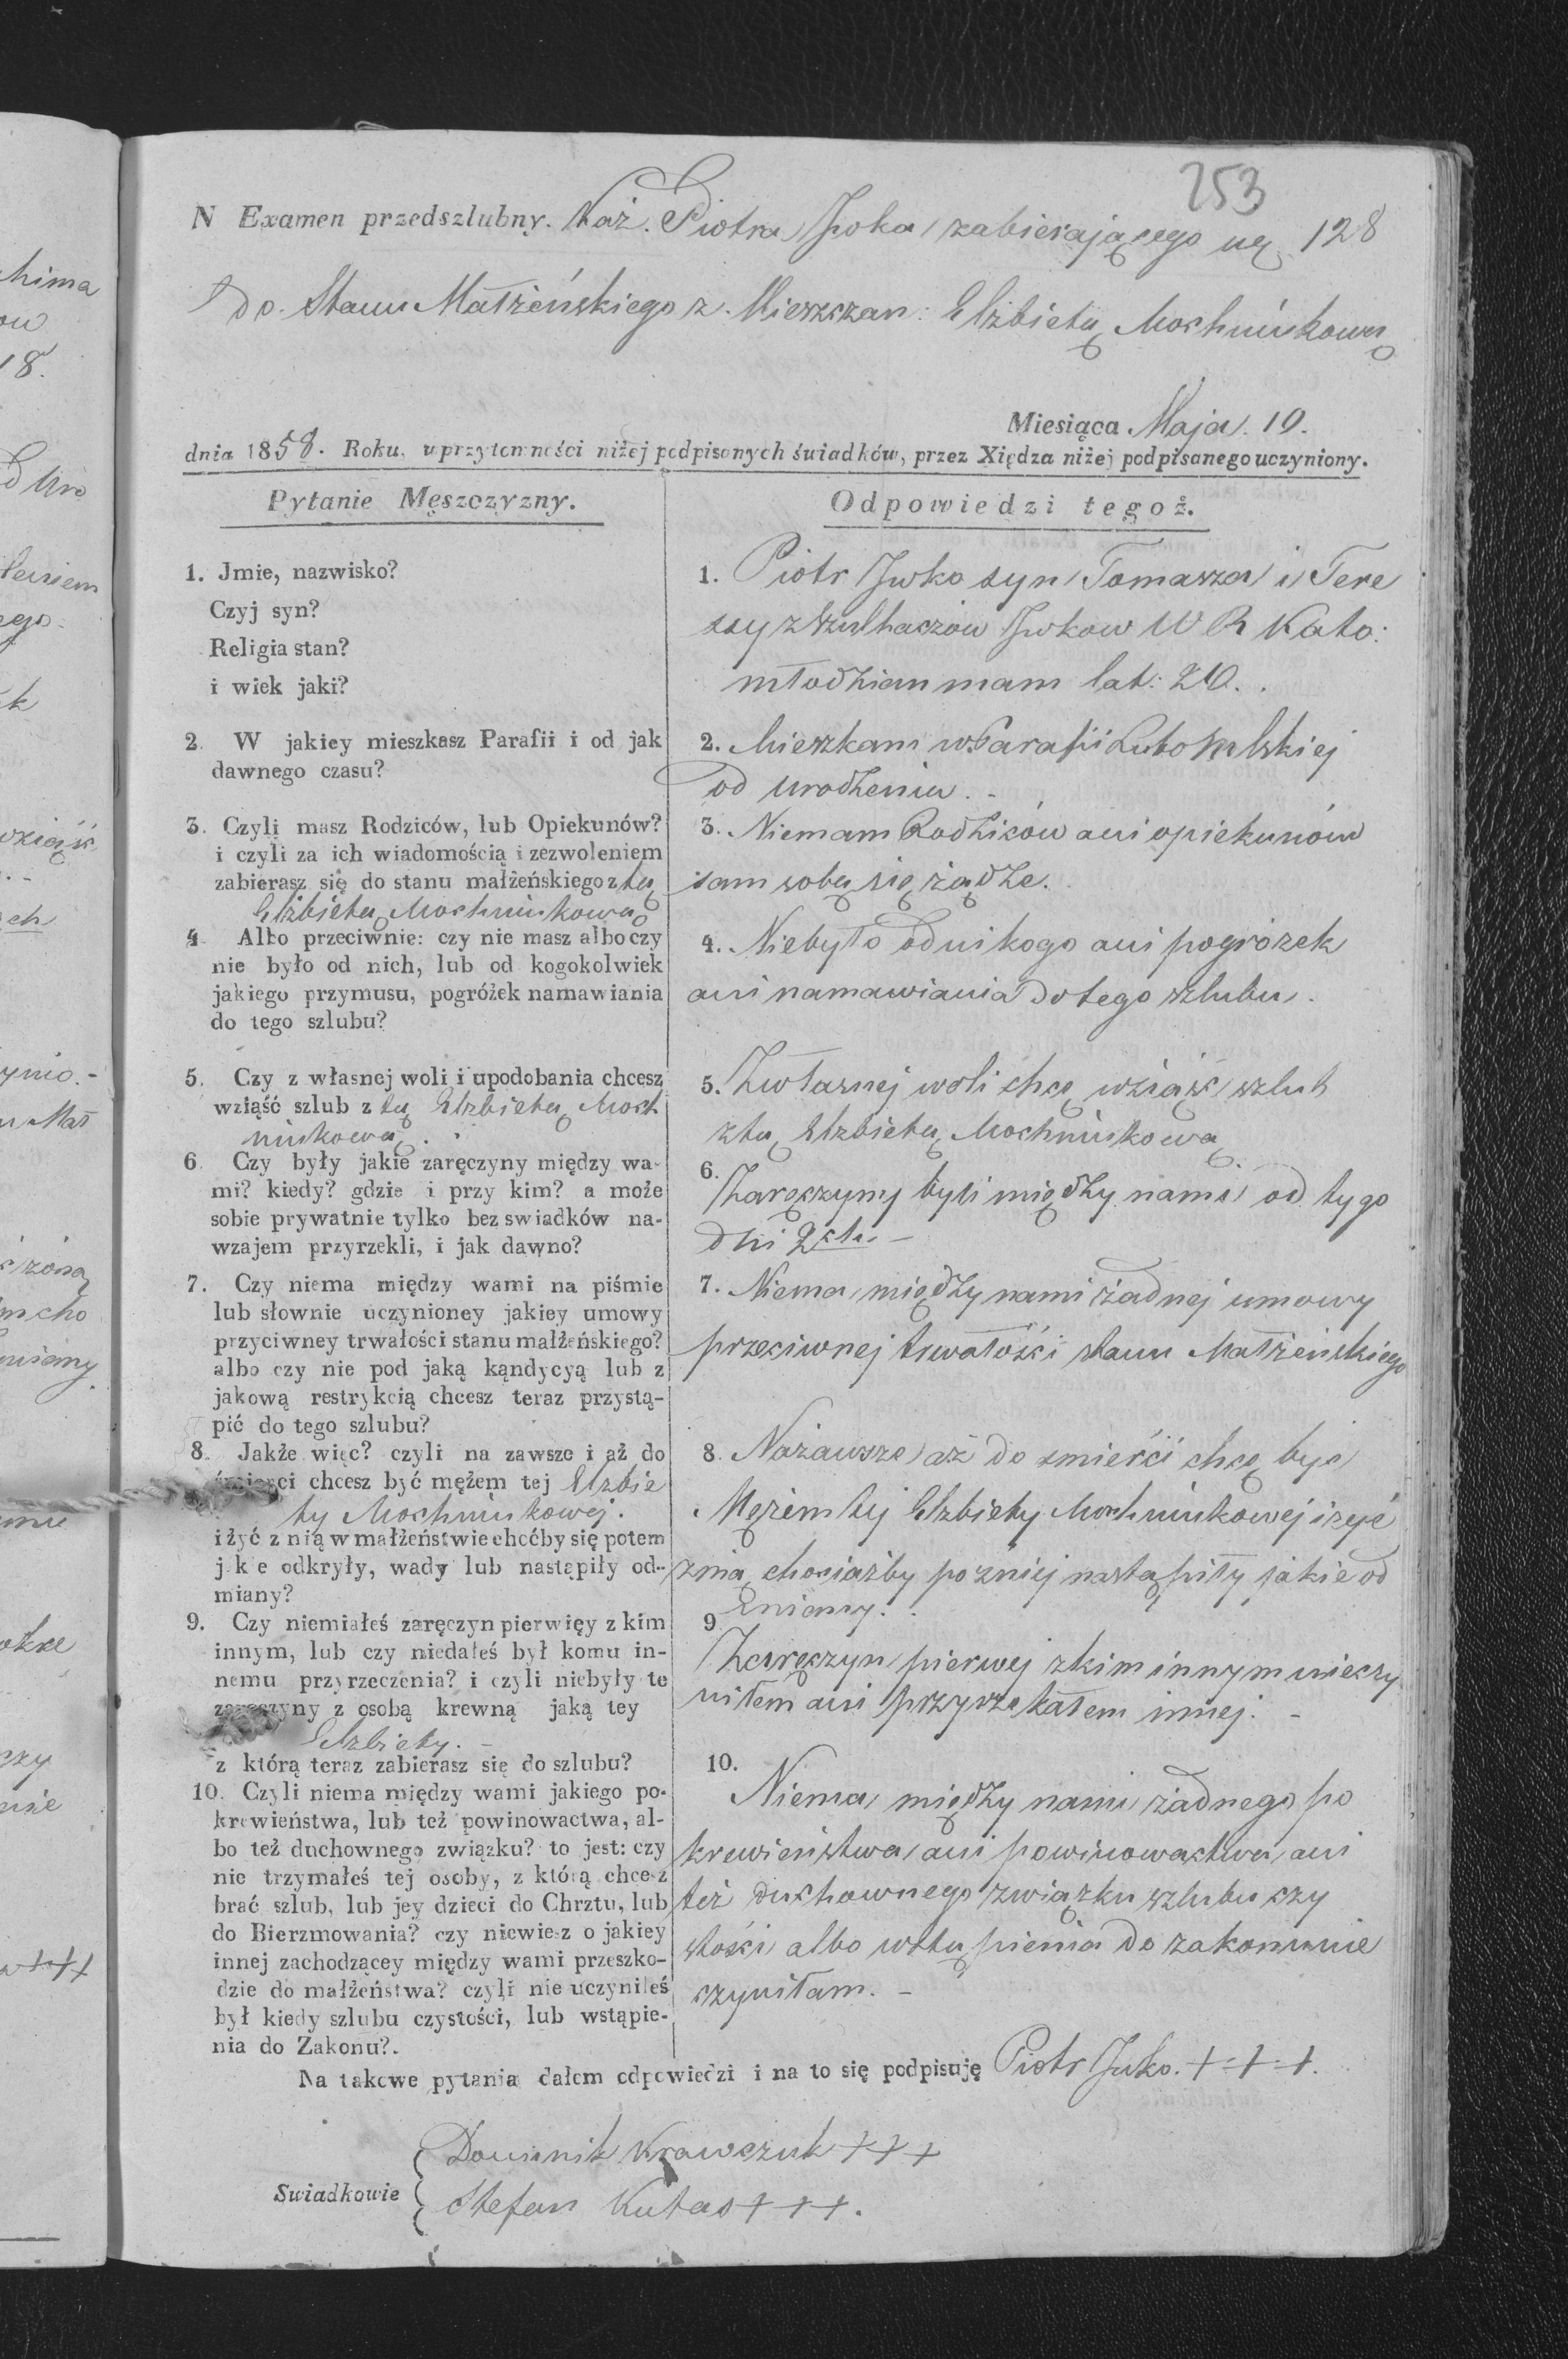 253
N Examen przedszlubny. Piotra Jwka zabierającego się 128
do Stanu Małżeńskiego z Mieszczan: Elżbietą Mochniukową
Miesiąca Maja. 10.
dnia 1858. Roku, w przytomności niżej podpisanych świadków, przez Xiędza niżej podpisanego uczyniony.
Pytanie Męszczyzny.
1. Jmie, nazwisko?
Czyj syn?
Religia stan?
i wiek jaki?
2. W jakiey mieszkasz Parafii i od jak
dawnego czasu?
3. Czyli masz Rodziców, lub Opiekunów?
i czyli za ich wiadomością i zezwoleniem
zabierasz się do stanu małżeńskiego z tą
Elżbietą Mochniukową
4. Albo przeciwnie: czy nie masz albo czy
nie było od nich, lub od kogokolwiek
jakiego przymusu, pogróżek namawiania
do tego szlubu?
5. Czy z własnej woli i upodobania chcesz
wziąść szlub z tą Elzbietą Moch
niukową.
6. Czy były jakie zaręczyny między wa-
mi? kiedy? gdzie i przy kim? a może
sobie prywatnie tylko bez swiadków na-
wzajem przyrzekli, i jak dawno?
7. Czy niema między wami na piśmie
lub słownie uczynioney jakiey umowy
przyciwney trwałości stanu małżeńskiego?
albo czy nie pod jaką kąndycyą lub z
jakową restrykcią chcesz teraz przystą-
pić do tego szlubu?
8. Jakże więc? czyli na zawsze i aż do
śmierci chcesz być mężem tej Elzbie
ty Mochniukowej.
i żyć z nią w małżeństwie choćby się potem
jkie odkryły, wady lub nastąpiły od-
miany?
9. Czy niemiałeś zaręczyn pierwięy z kim
innym, lub czy niedałeś był komu in-
nemu przyrzeczenia? i czyli niebyły te
zaręczyny z osobą krewną jaką tey
Elzbiety. -
z którą teraz zabierasz się do szlubu?
10. Czyli niema między wami jakiego po-
krewieństwa, lub też powinowactwa, al-
bo też duchownego związku? to jest: czy
nie trzymałeś tej osoby, z którą chcesz
brać szlub, lub jey dzieci do Chrztu, lub
do Bierzmowania? czy niewiesz o jakiey
innej zachodzącey między wami przeszko-
dzie do małżeństwa? czyli nie uczyniłeś
był kiedy szlubu czystości, lub wstąpie-
nia do Zakonu?.
Odpowiedzi tegoż.
1. Piotr Jwko syn Tomasza i Tere
ssy z Szulhaczow Jwkow W R Kato:
młodzian mam lat: 20.
2. Mieszkam w Parafii Lubomlskiej
od urodzenia. -
3. Niemam Rodziców ani opiekunów
sam sobą się żądze.
4. Niebyło od nikogo ani pogrożek
ani namawiania do tego szlubu.
5. Zwłasnej woli chcę wziąść szlub
ztą Elzbietą Mochniukową.
6. Zaręczyny byli między nami od tygo
dni 2ch. -
7. Niema między nami żadnej umowy
przeciwnej trwałości stanu Małżeńskiego
8. Nazawsze aż do smierci chcę być
Męzem tej Elzbiety Mochniukowej i zyć
znią chociażby pozniej nastąpiły jakie od
miany.
9. Zaręczyn pierwej zkim innym nieczy
niłem ani przyrzekałem innej. -
10. Niema między nami żadnego po
krewieństwa ani powinowactwa ani
też duchownego związku szlubu czy
stości albo wstąpienia do zakonu nie
czyniłam. -
Na takowe pytania dałem odpowiedzi i na to się podpisuję Piotr Jwko. + + +.
Swiadkowie
Dominik Krawczuk + + +
Stefan Kutas + + +.